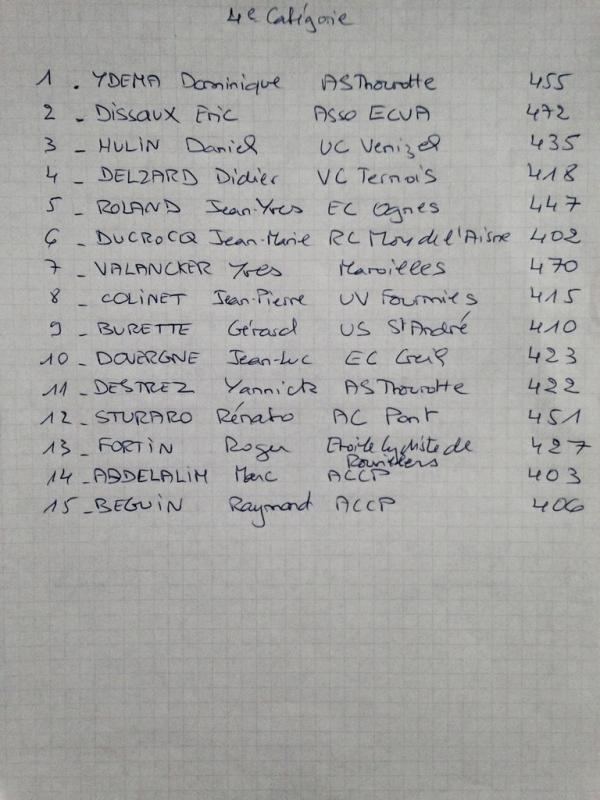 4e Catégorie
1 . YDEMA Dominique ASThourotte 455
2 - DISSAUX Eric Asso ECUA 472
3 - HULIN Daniel UC Venizel 435
4 - DELZARD Didier VC Ternois 418
5 - ROLAND Jean-Yves EC Ognes 447
6 - DUCROCQ Jean-Marie RC Moy de l'Aisne 402
7 - VALANCKER Yves Maroilles 470
8 - COLINET Jean-Pierre UV Fourmies 415
9 - BURETTE Gérard US St André 410
10 - DOVERGNE Jean-Luc EC Creil 423
11 - DESTREZ Yannick ASThourotte 422
12 - STURARO Rénato AC Pont 451
13 - FORTIN Roger Etoile Cycliste de 427
Rouvillers
14 - ABDELALIM Marc ACCP 403
15 - BEGUIN Raymond ACCP 406